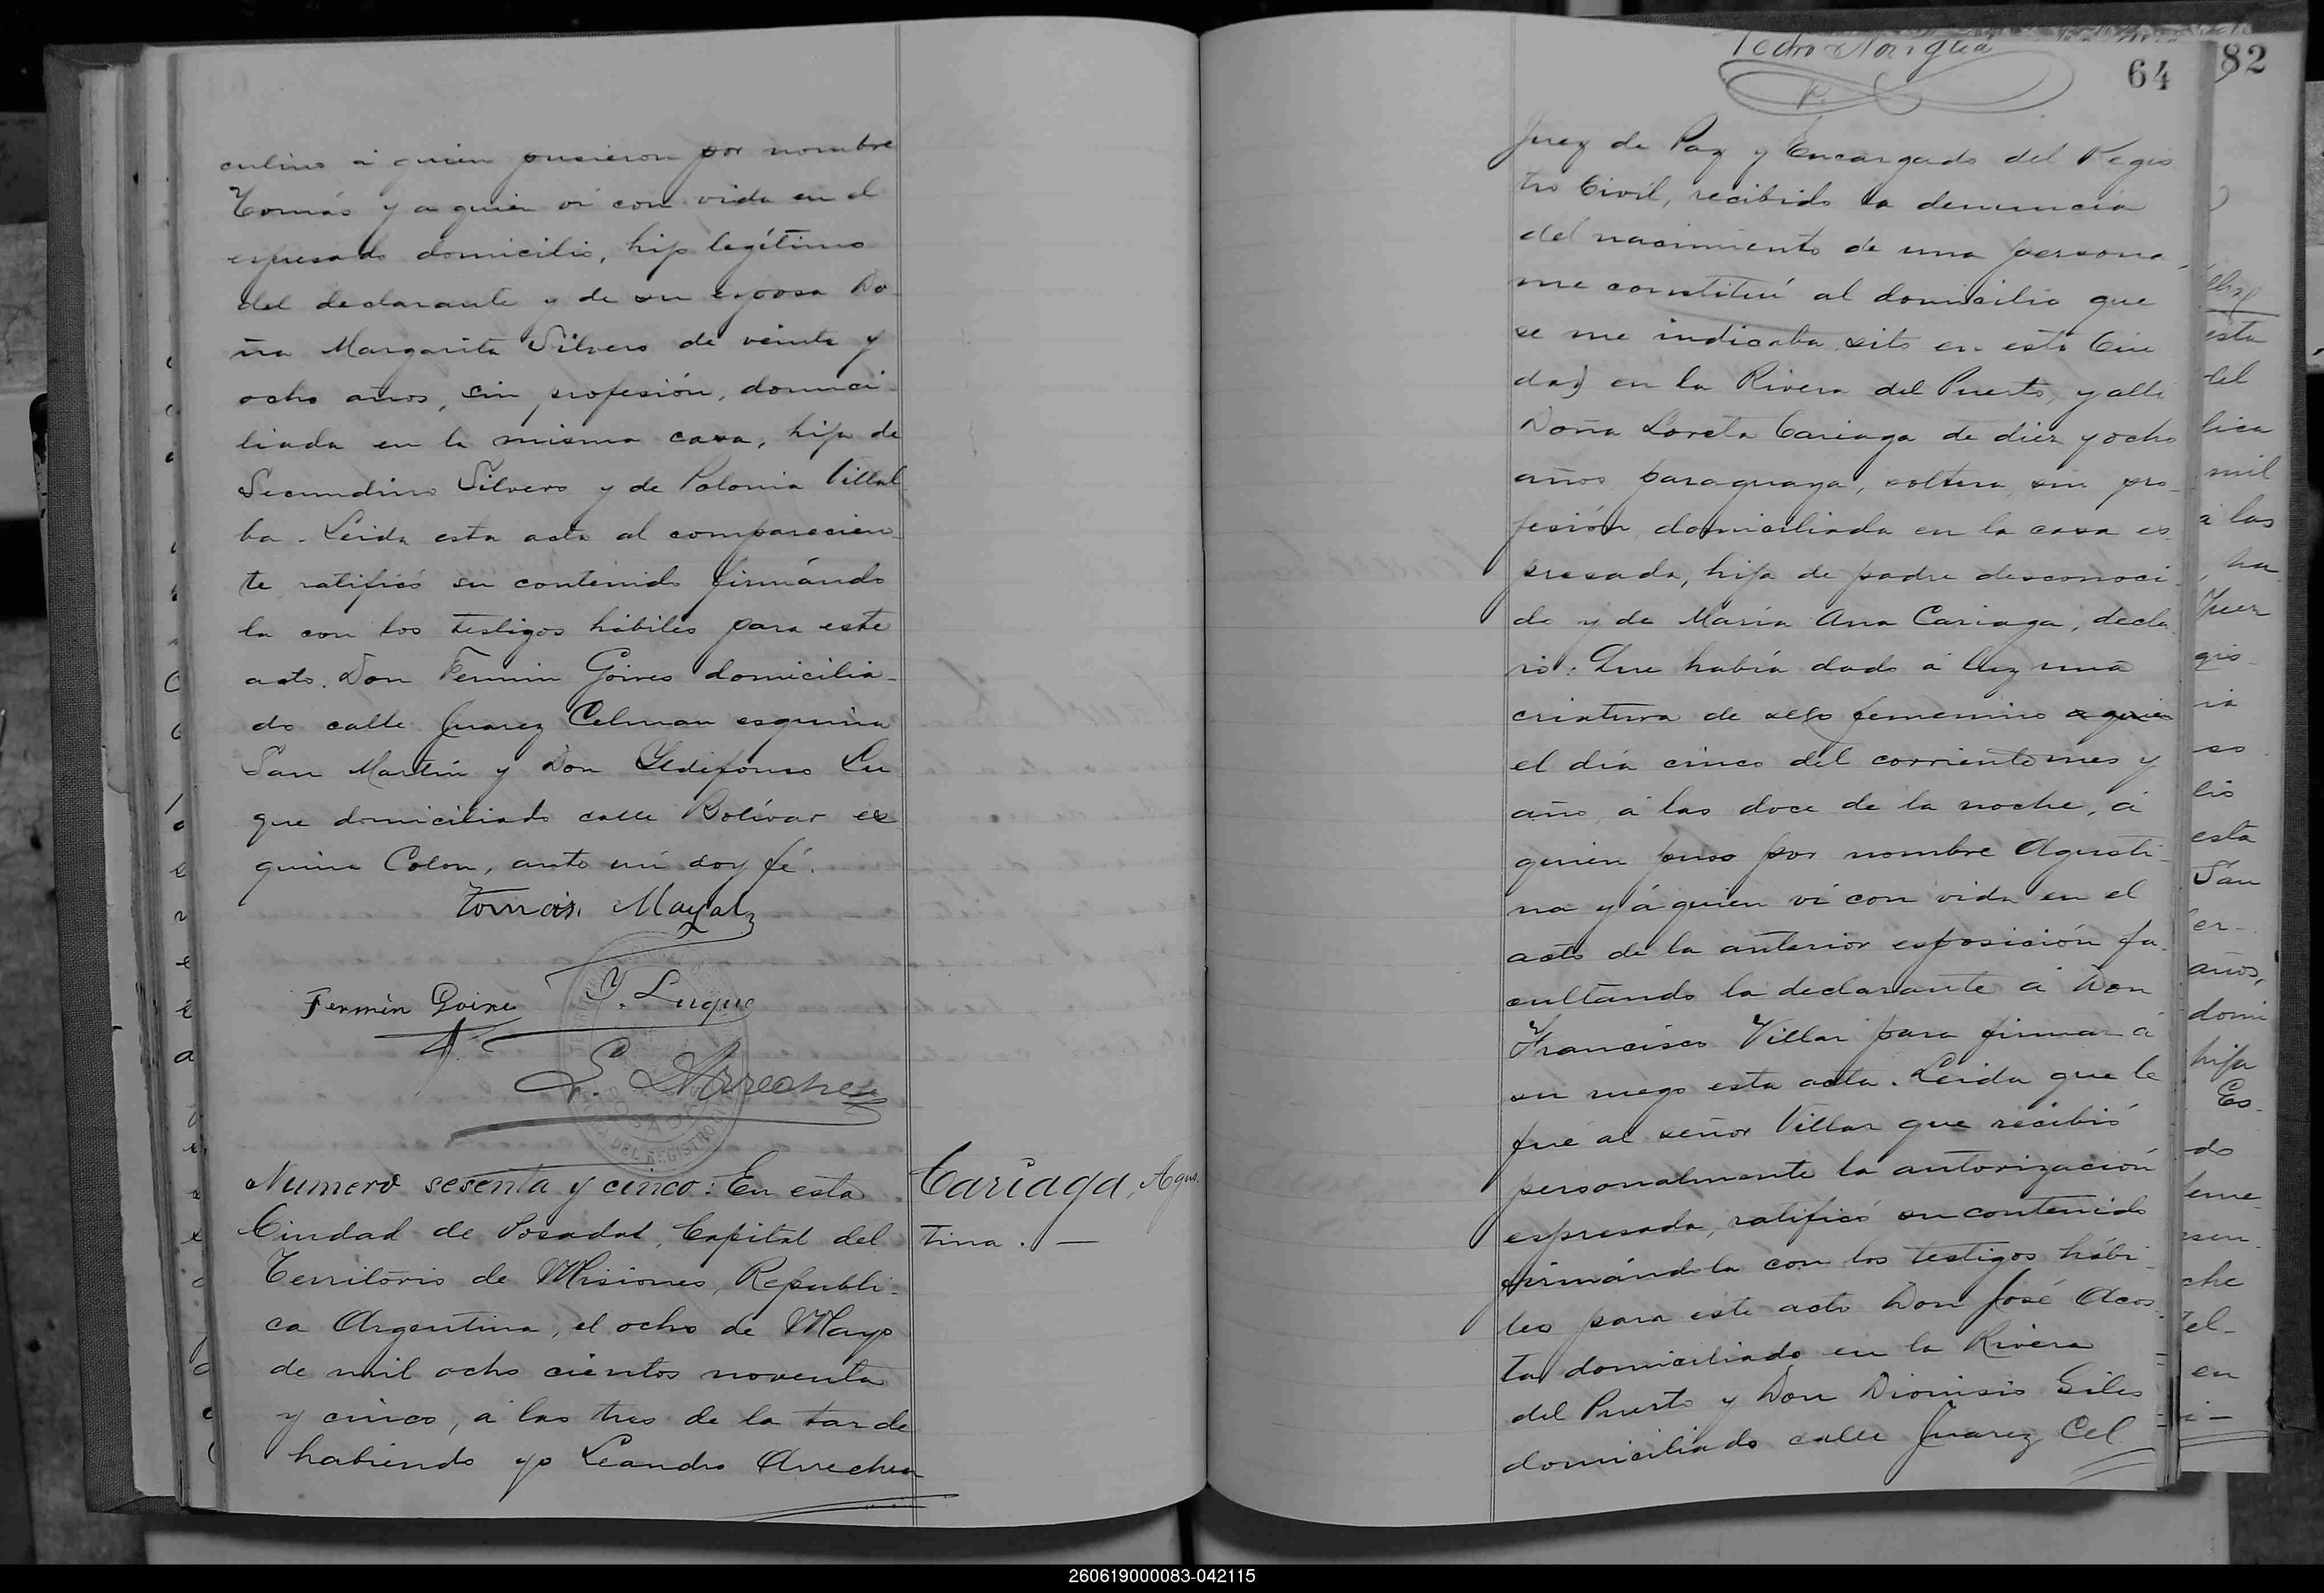 culino á quien pusieron por nombre
Tomás y a quien ví con vida en el
espresado domicilio, hijo legítimo
del declarante y de su esposa Do-
ña Margarita Silvero de veinte y
ocho años, sin profesión, domici-
liada en la misma casa, hija de
Secundino Silvero y de Polonia Villal
ba. Leida esta acta al comparecien-
te ratificó su contenido firmándo
la con los testigos hábiles para este
acto. Don Fermin Goires domicilia-
do calle Juarez Celman esquina
San Martin y Don Yldefonso Lu
que domiciliado calle Bolívar es
quina Colon, ante mí doy fé.
Tomás
Fermín Goires Y. Luque
L. Arrechea
DEL REGISTRO
Numero sesenta y cinco: En esta
Ciudad de Posadas, Capital del
Territorio de Misiones, Republi-
ca Argentina, el ocho de Mayo
de mil ocho cientos noventa
y cinco, a las tres de la tarde
habiendo yo Leandro Arrechea
Cariaga, Agus-
tina. —
Pedro
64
82
Juez de Paz y Encargado del Regis
tro Civil, recibido la denuncia
del nacimiento de una persona
me constituí al domicilio que
se me indicaba sito en esta Ciu
dad en la Rivera del Puerto, y allí
Doña Loreta Cariaga de diez y ocho
años, paraguaya, soltera, sin pro-
fesión, domiciliada en la casa es
presada, hija de padre desconoci-
do y de María Ana Cariaga, decla
ró: Que había dado á luz una
criatura de sexo femenino a quien
el día cinco del corriente mes y
año, á las doce de la noche, á
quien puso por nombre Agusti-
na y á quien ví con vida en el
acto de la anterior esposición fa-
cultando la declarante á Don
Francisco Villar para firmar á
su ruego esta acta. Leida que le
fué al señor Villar que recibió
personalmente la autorización
espresada, ratificó su contenido
firmándola con los testigos hábi-
les para este acto Don José Acos-
ta domiciliado en la Rivera
del Puerto y Don Dionisio Giles
domiciliado calle Juarez Cel
esta
del
lica
mil
á las
ha
Juez
gis-
ia
so
lio
esta
San
er-
años,
domi
hija
Es-
do
feme-
sen-
che
el-
en
260619000083-042115